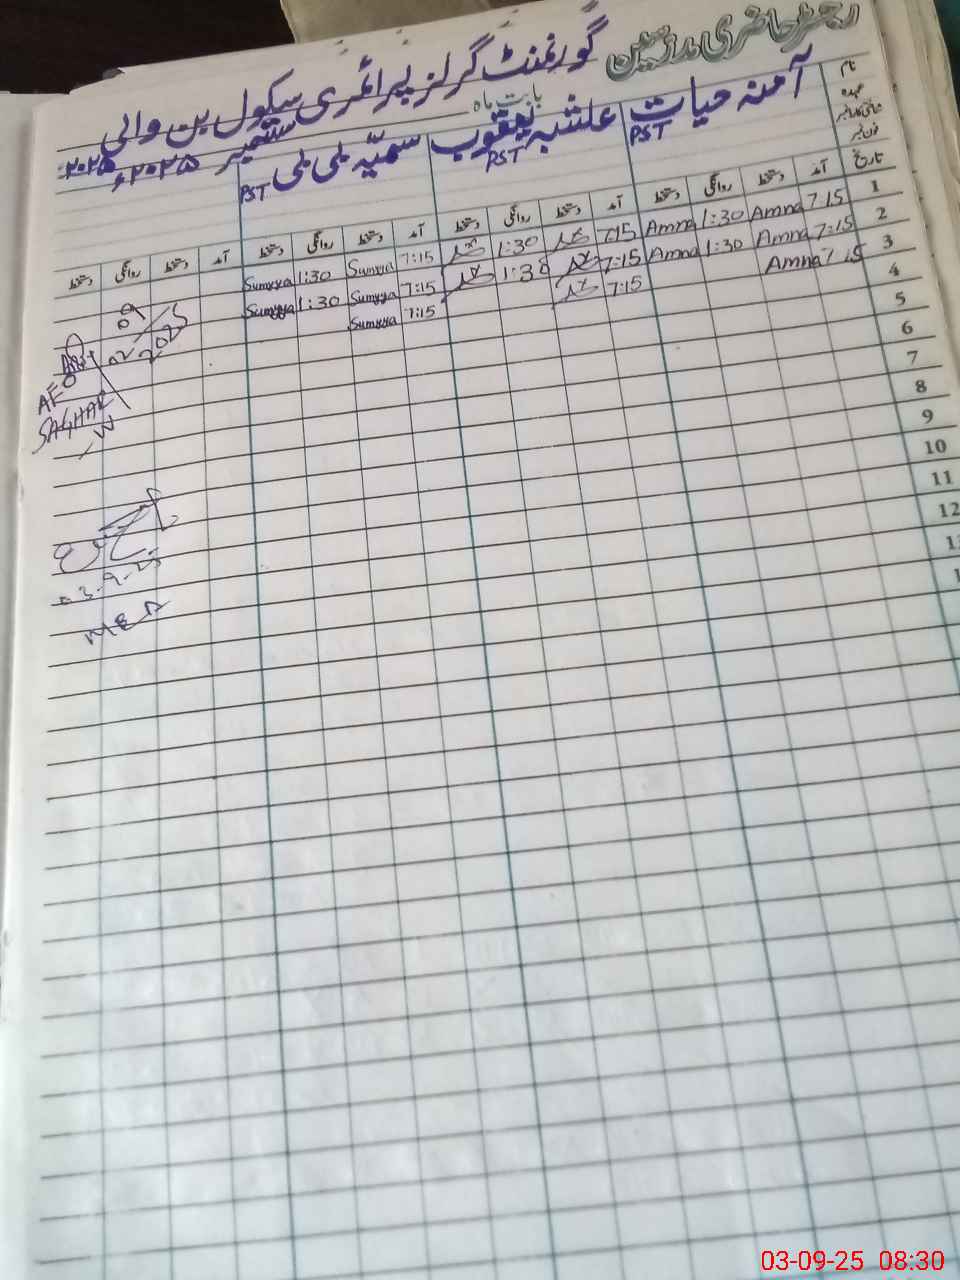 رجسٹر حاضری مدرسین
گورنمنٹ گرلز پرائمری سکول بن والی
بابت ماہ ستمبر ۲۰۲۵ء ۲۰۲۵
نام آمنہ حیات علشبہ یعقوب سمیّہ بی بی
عہدہ PST PST PST
شناختی کارڈ نمبر
فون نمبر
تاریخ آمد دستخط روانگی دستخط آمد دستخط روانگی دستخط آمد دستخط روانگی دستخط آمد دستخط روانگی دستخط
1 7:15 Amna 1:30 Amna 7:15 1:30 7:15 Sumyya 1:30 Sumyya
2 7:15 Amna 1:30 Amna 7:15 1:30 7:15 Sumyya 1:30 Sumyya
3 7:15 Amna 7:15 7:15 Sumyya
4
5
6
7
8
9
10
11
12
02/09
2025
AEO
SAGHAR
-W
03-9-25
MEA
03-09-25 08:30